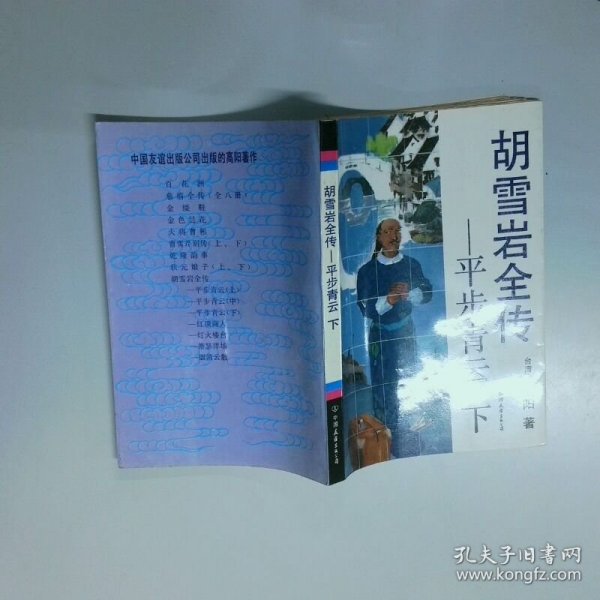 中国友谊出版公司出版的高阳著作
百花洲
慈禧全传(全八册)
金缕鞋
金色昙花
大将曹彬
曹雪芹别传(上、下)
乾隆韵事
状元娘子(上、下)
胡雪岩全传
—平步青云(上)
—平步青云(中)
—平步青云(下)
—红顶商人
—灯火楼台
—萧瑟洋场
—烟消云散
胡雪岩全传—平步青云 下
中国友谊出版公司
胡雪岩全传
—平步青云 下
阳 著
孔夫子旧书网
www.kongfz.com